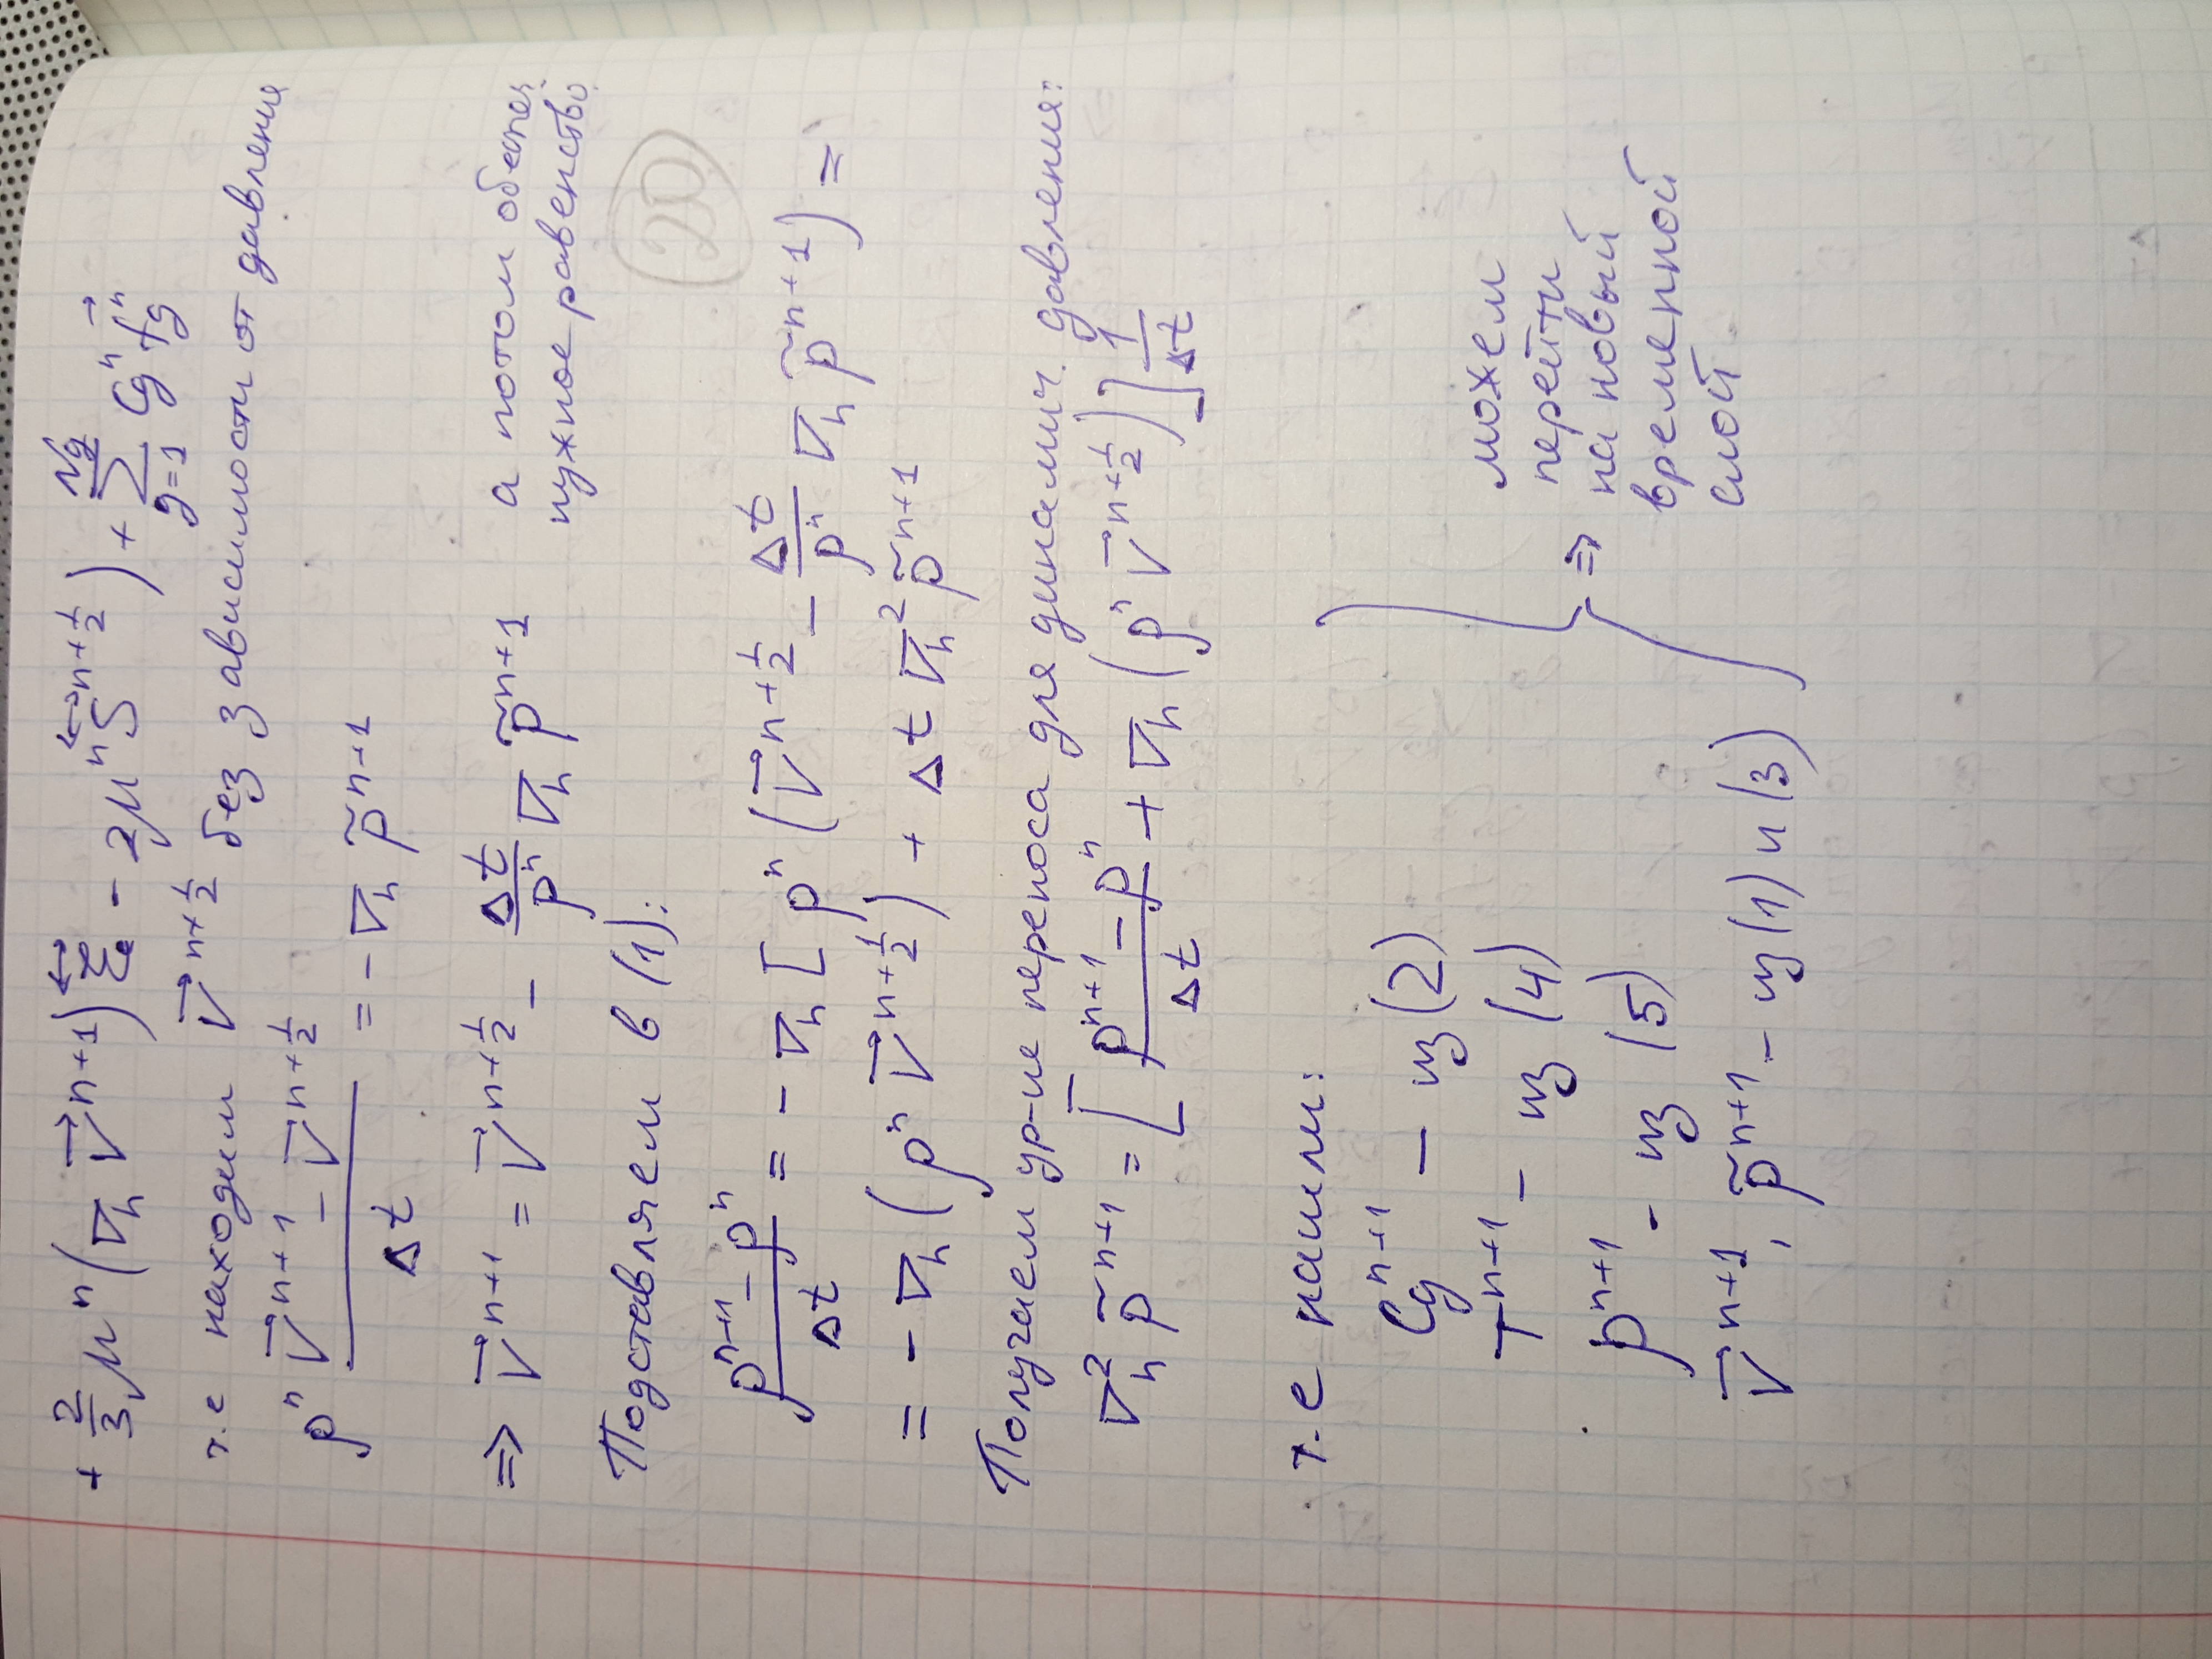 + 2/3 μⁿ (∇ₕ V⃗ⁿ⁺¹) ξ⃡ - 2μⁿ S⃡ⁿ⁺¹ᐟ² ) + Σ_{g=1}^{Ng} Cgⁿ f⃗gⁿ
т.е находим V⃗ⁿ⁺¹ᐟ² без зависимости от давления
ρⁿ (V⃗ⁿ⁺¹ - V⃗ⁿ⁺¹ᐟ²)/Δt = -∇ₕ p̃ⁿ⁺¹
⇒ V⃗ⁿ⁺¹ = V⃗ⁿ⁺¹ᐟ² - Δt/ρⁿ ∇ₕ p̃ⁿ⁺¹ а потом обеспеч.
нужное равенство
Подставляем в (1):
20
(ρⁿ⁺¹ - ρⁿ)/Δt = - ∇ₕ [ ρⁿ (V⃗ⁿ⁺¹ᐟ² - Δt/ρⁿ ∇ₕ p̃ⁿ⁺¹) =
= - ∇ₕ (ρⁿ V⃗ⁿ⁺¹ᐟ²) + Δt ∇ₕ² p̃ⁿ⁺¹
Получаем ур-ие переноса для динамич. давления:
∇ₕ² p̃ⁿ⁺¹ = [ (ρⁿ⁺¹ - ρⁿ)/Δt + ∇ₕ (ρⁿ V⃗ⁿ⁺¹ᐟ²) ] 1/Δt
т.е нашли:
Cgⁿ⁺¹ - из (2)
Tⁿ⁺¹ - из (4)
ρⁿ⁺¹ - из (5)
V⃗ⁿ⁺¹, p̃ⁿ⁺¹ - из (1) и (3)
⇒ можем
перейти
на новый
временной
слой